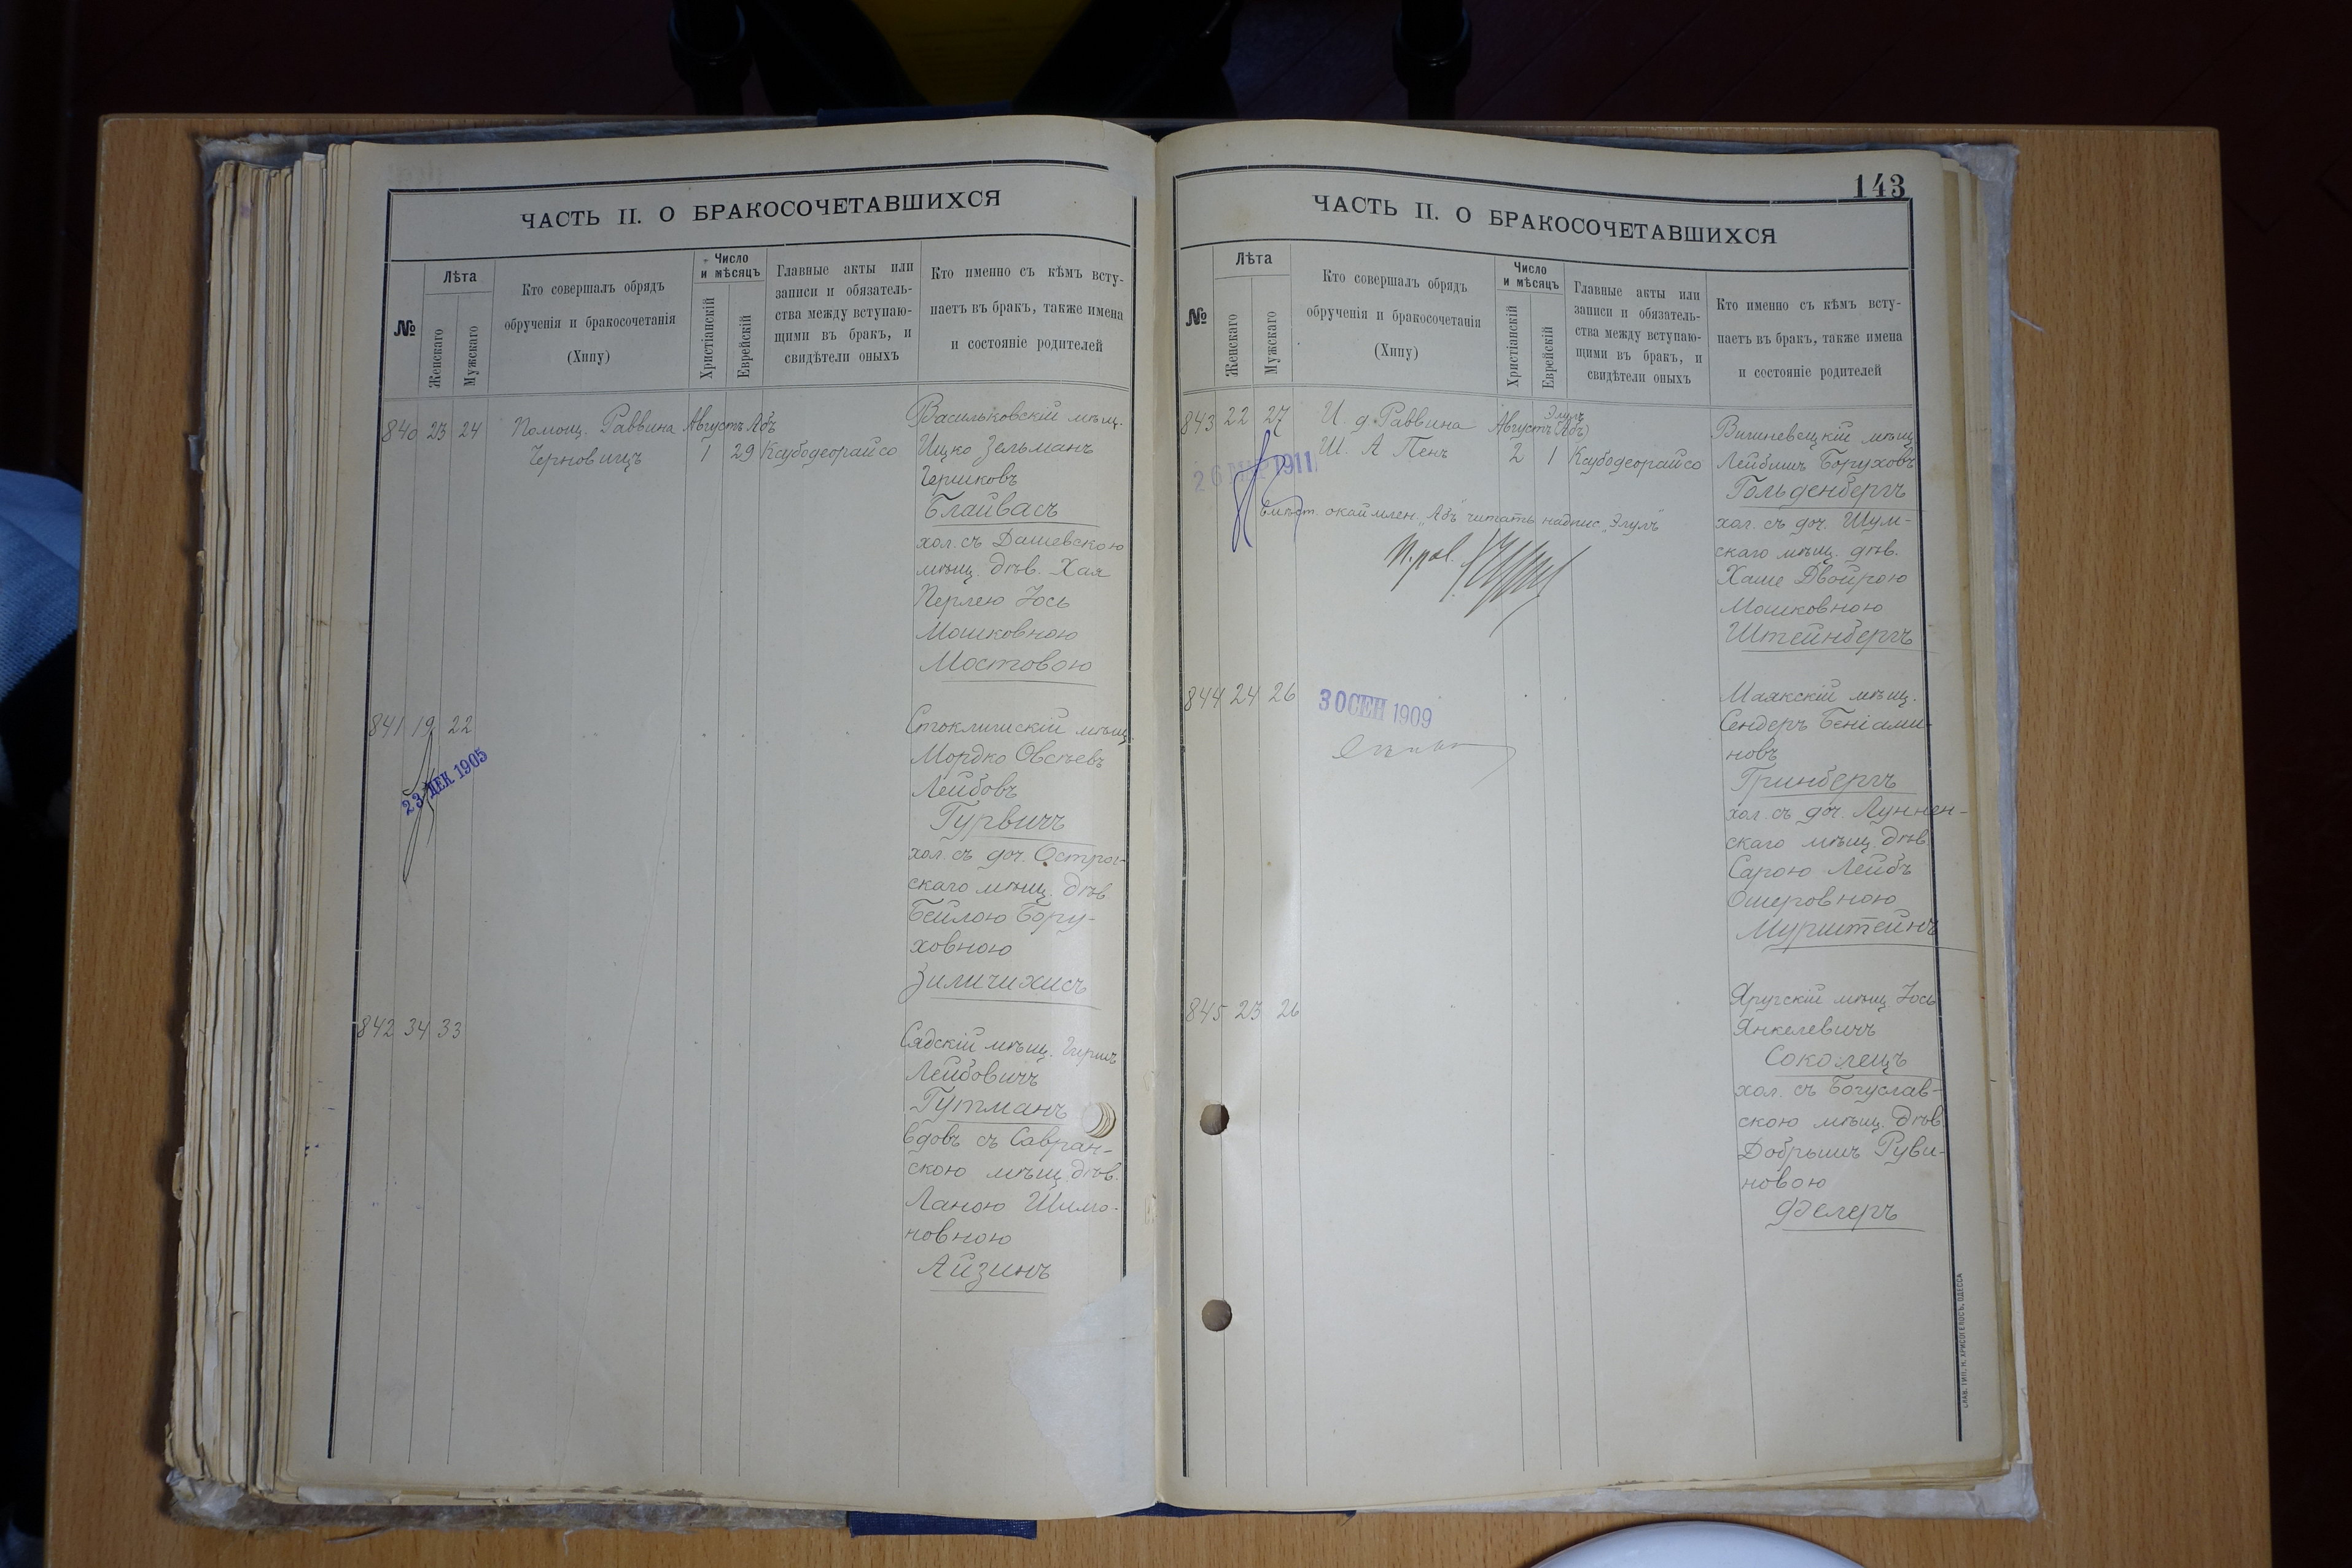 ЧАСТЬ II. О БРАКОСОЧЕТАВШИХСЯ
№
Лѣта
Женскаго
Мужскаго
Кто совершалъ обрядъ
обрученія и бракосочетанія
(Хипу)
Число
и мѣсяцъ
Христіанскій
Еврейскій
Главные акты или
записи и обязатель-
ства между вступаю-
щими въ бракъ, и
свидѣтели оныхъ
Кто именно съ кѣмъ всту-
паетъ въ бракъ, также имена
и состояніе родителей
840 23 24 Помощ. Раввина Августъ Абъ
Черновицъ 1 29 Каубодеорайсо
Васильковскій мѣщ.
Ицко Зельманъ
Гершковъ
Блайвасъ
хол. съ Дашевскою
мѣщ. дѣв. Хая
Перлею Іось
Мошковною
Мостовою
841 19 22
23 ДЕК 1905
Стоклишскій мѣщ.
Мордко Овсѣевъ
Лейбовъ
Гурвичъ
хол. съ доч. Острог-
скаго мѣщ. дѣв
Бейлою Бору-
ховною
Зиличихисъ
842 34 33
Сядскій мѣщ. Гершъ
Лейбовичъ
Гутманъ
вдовъ съ Савран-
скою мѣщ. дѣв.
Ханою Шлмо-
новною
Айзинъ
143
ЧАСТЬ II. О БРАКОСОЧЕТАВШИХСЯ
№
Лѣта
Женскаго
Мужскаго
Кто совершалъ обрядъ
обрученія и бракосочетанія
(Хипу)
Число
и мѣсяцъ
Христіанскій
Еврейскій
Главные акты или
записи и обязатель-
ства между вступаю-
щими въ бракъ, и
свидѣтели оныхъ
Кто именно съ кѣмъ всту-
паетъ въ бракъ, также имена
и состояніе родителей
Элулъ
843 22 27 И. д. Раввина Августъ (Абъ)
Ш. А Пенъ 2 1 Каубодеорайсо
1911
Вмѣст. окаймлен. „Абъ" читать надпис. „Элулъ"
Вишневецкій мѣщ
Лейбишъ Боруховъ
Гольденбергъ
хол. съ доч. Шум-
скаго мѣщ. дѣв.
Хаше Двойрою
Мошковною
Штейнбергъ
844 24 26
30 СЕН 1909
Маякскій мѣщ.
Сендеръ Беніами-
новъ
Гринбергъ
хол. съ доч. Луннен-
скаго мѣщ. дѣв
Сарою Лейбъ
Ошеровною
Мурштейнъ
845 23 26
Яругскій мѣщ Іось
Янкелевичъ
Соколецъ
хол. съ Богуслав-
скою мѣщ. дѣв.
Добрышъ Руви-
новою
Фелеръ
СЛАВ. ТИП. Н. ХРИСОГЕЛОСЪ, ОДЕССА